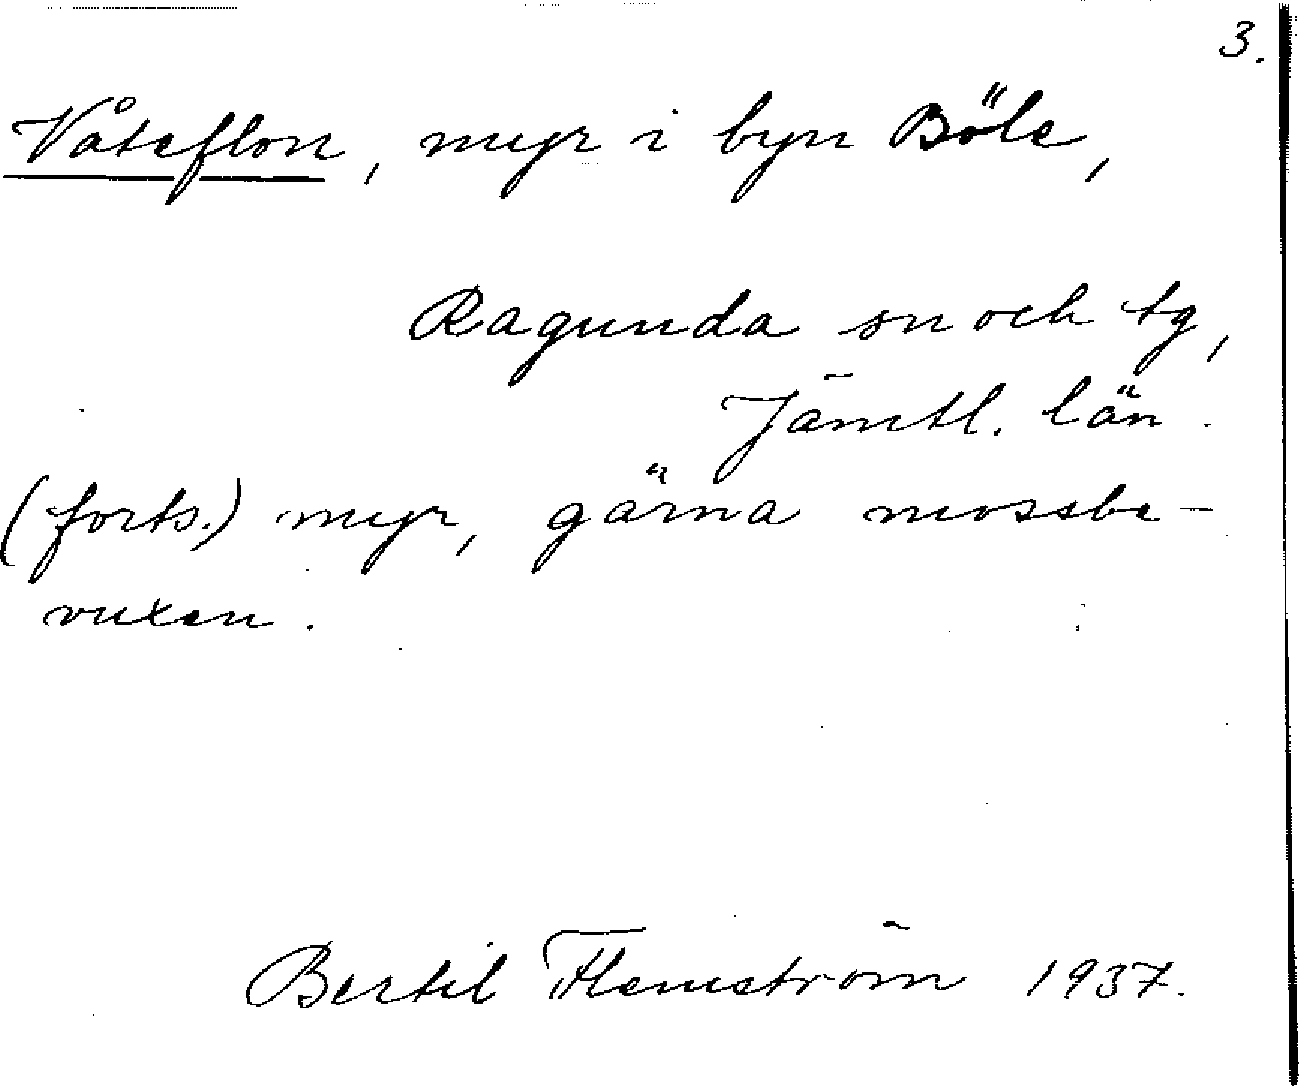 3.
Våteflon, myr i byn Böle,
Ragunda sn och tg,
Jämtl. län.
(forts.) myr, gärna mossbe-
vuxen.
Bertil Flemström 1937.